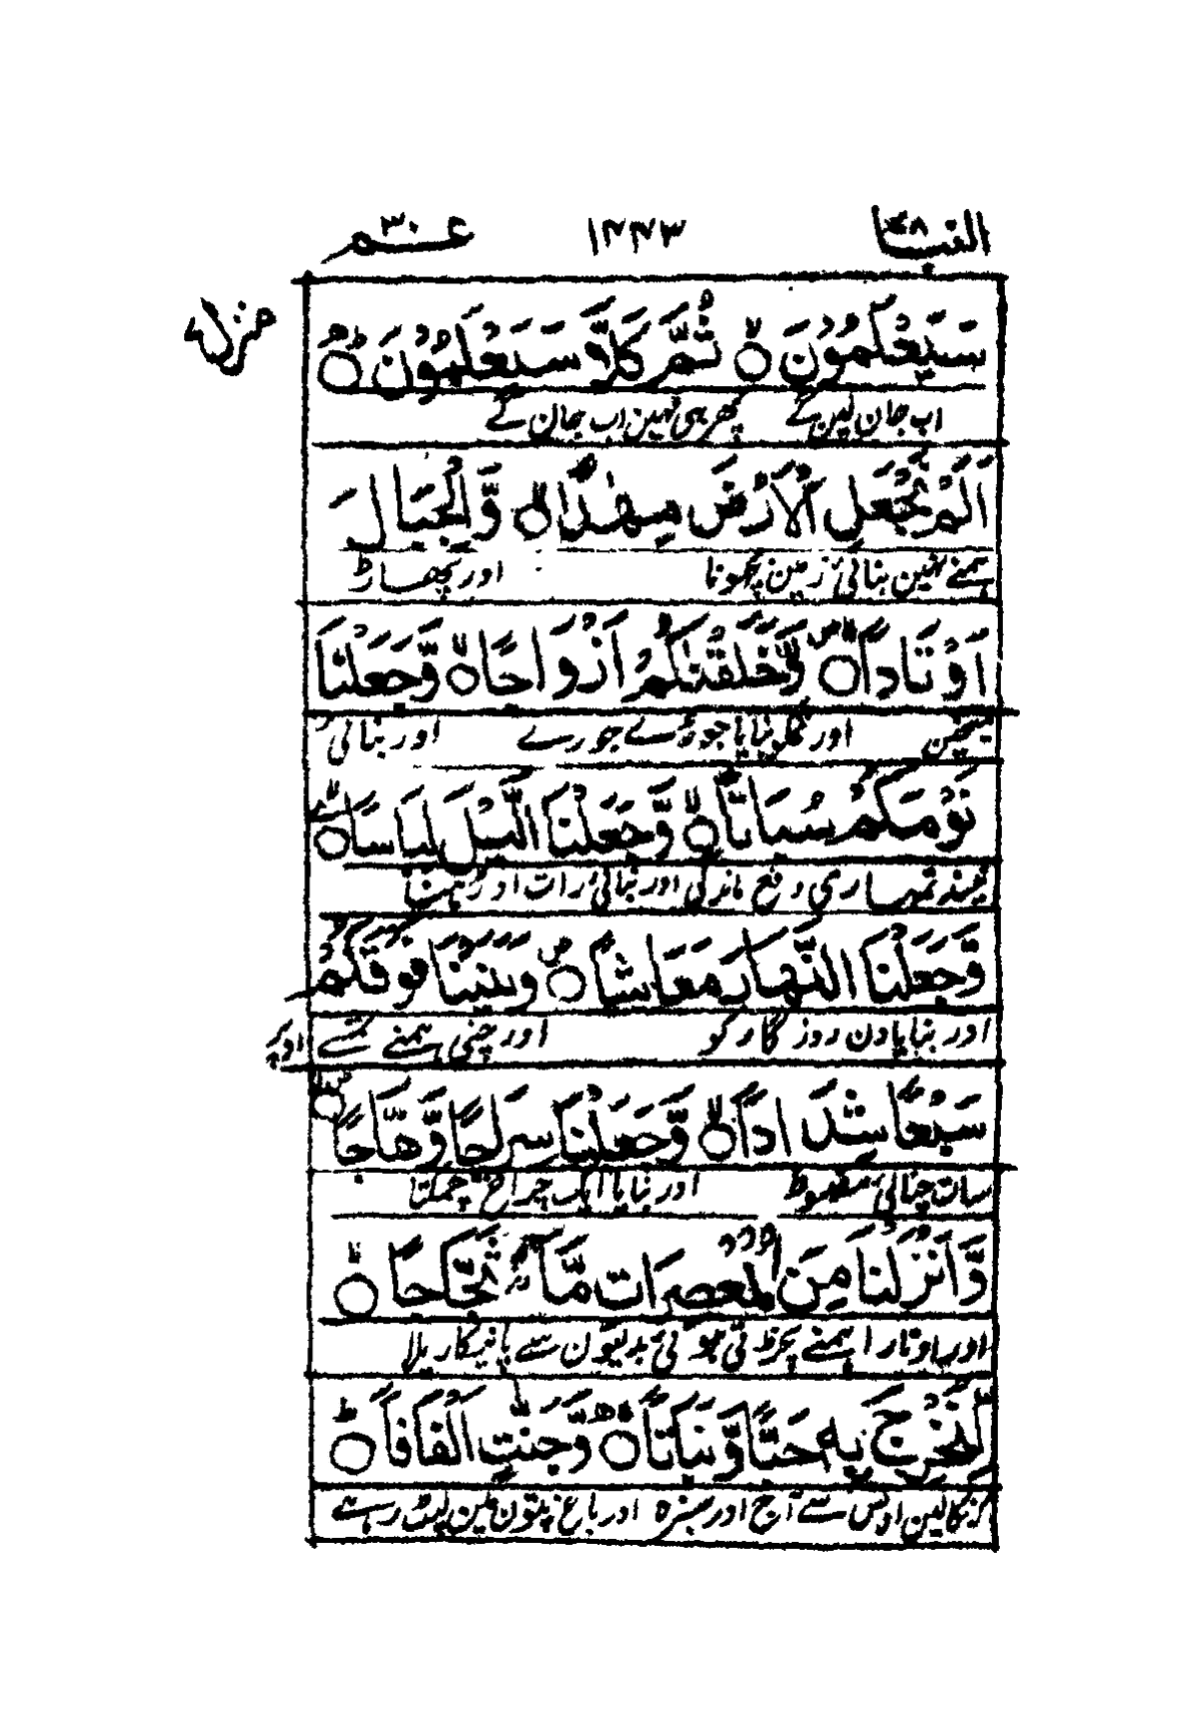 النبا ٧٨ ١٤٤٣ عم ٣٠
منزل ٧
سَيَعْلَمُوْنَ ۙ ثُمَّ كَلَّا سَيَعْلَمُوْنَ
اب جان لین گے پھر بھی نہین اب جان گے
اَلَمْ نَجْعَلِ الْاَرْضَ مِهٰدًا ۙ وَّالْجِبَالَ
ہمنے نہین بنائی زمین بچھونا اور پھاڑ
اَوْتَادًا ۙ وَّخَلَقْنٰكُمْ اَزْوَاجًا ۙ وَّجَعَلْنَا
میخین اور تمکو بنایا جوڑے جوڑے اور بنائی
نَوْمَكُمْ سُبَاتًا ۙ وَّجَعَلْنَا الَّيْلَ لِبَاسًا ۙ
نیند تمہاری دفع ماندگی اور بنائی رات اوڑہنا
وَّجَعَلْنَا النَّهَارَ مَعَاشًا ۙ وَبَنَيْنَا فَوْقَكُمْ
اور بنایا دن روزگار کو اور چنی ہمنے تمسے اوپر
سَبْعًا شِدَادًا ۙ وَّجَعَلْنَا سِرَاجًا وَّهَّاجًا
سات چنائی مضبوط اور بنایا ایک چراغ چمکتا
وَّاَنْزَلْنَا مِنَ الْمُعْصِرٰتِ مَآءً ثَجَّاجًا ۙ
اور اوتارا ہمنے نچڑتی ہوئی بدلیون سے پانیکا ریلا
لِّنُخْرِجَ بِهٖ حَبًّا وَّنَبَاتًا ۙ وَّجَنّٰتٍ اَلْفَافًا ؕ
کہ نکالین اوس سے آج اور سبزہ اور باغ پتون مین لپٹ رہے